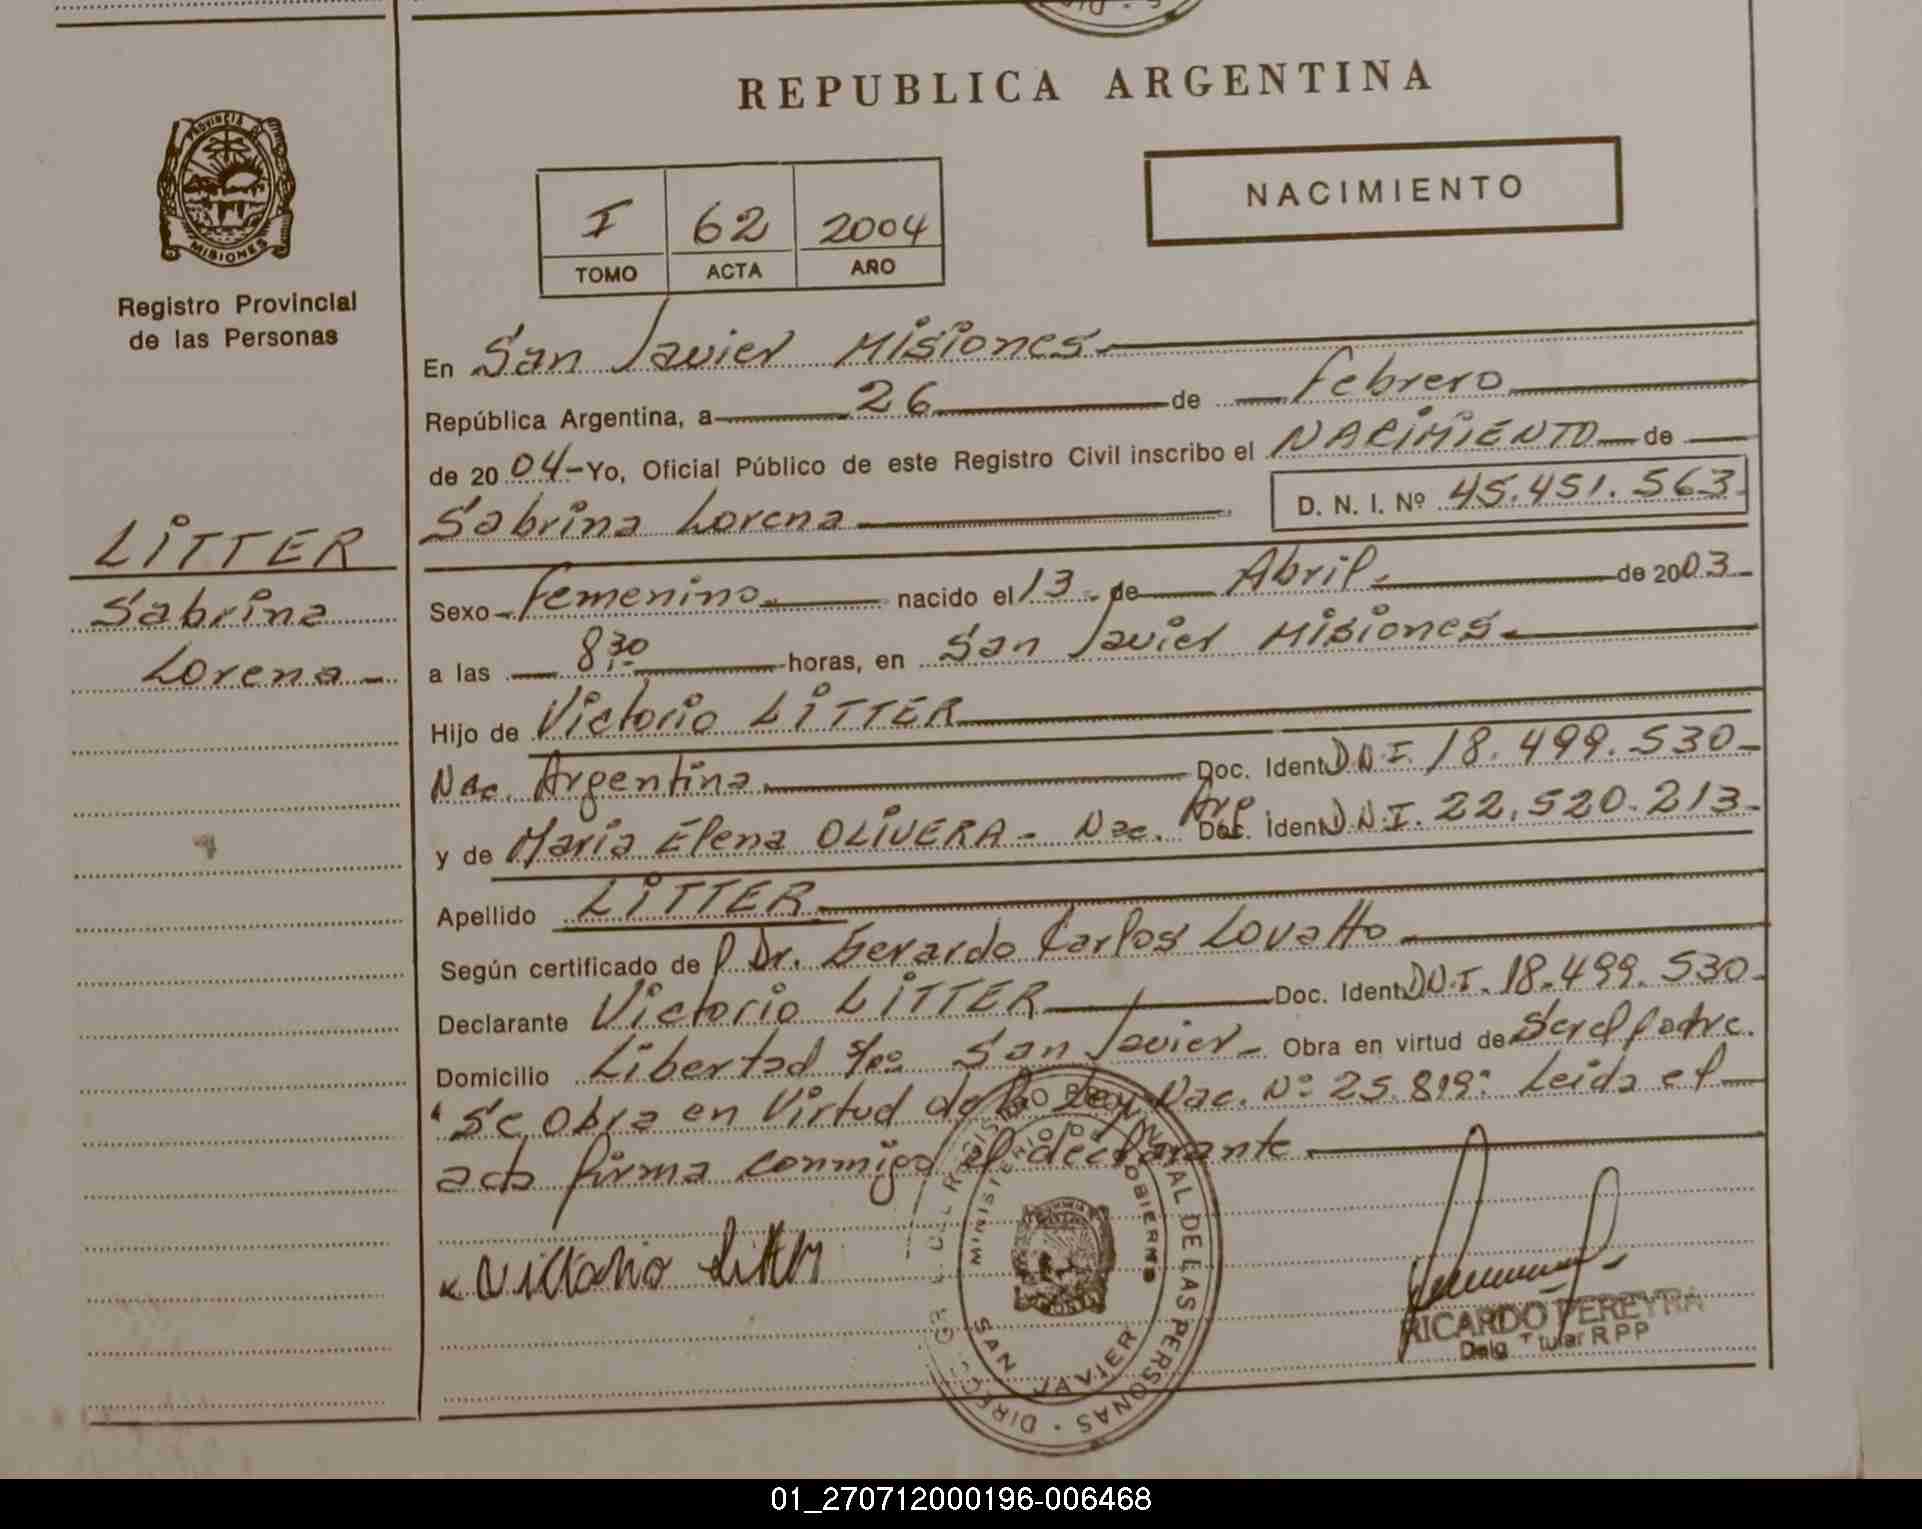 REPUBLICA ARGENTINA
PROVINCIA DE
MISIONES
Registro Provincial
de las Personas
NACIMIENTO
I 62 2004
TOMO ACTA AÑO
En San Javier Misiones
República Argentina, a 26 de Febrero
de 2004 - Yo, Oficial Público de este Registro Civil inscribo el NACIMIENTO de
Sabrina Lorena D. N. I. Nº 45.451.563
LITTER
Sabrina
Lorena -
Sexo Femenino nacido el 13 de Abril de 2003
a las 8,30 horas, en San Javier Misiones
Hijo de Victorio LITTER
Nac. Argentina Doc. Ident D.N.I. 18.499.530
y de María Elena OLIVERA - Nac. Arg Doc. Ident D.N.I. 22.520.213
Apellido LITTER
Según certificado de l Dr. Gerardo Carlos Lovatto
Declarante Victorio LITTER Doc. Ident D.N.I. 18.499.530
Domicilio Libertad s/nº San Javier - Obra en virtud de Ser el padre.
"Se obra en Virtud de la Ley Nac. Nº 25.819" Leida el
acta firma conmigo el declarante
Victorio Litter
MINISTERIO DE GOBIERNO
SAN JAVIER
AL DE LAS PERSONAS
RICARDO PEREYRA
Delg. Titular RPP
01_270712000196-006468